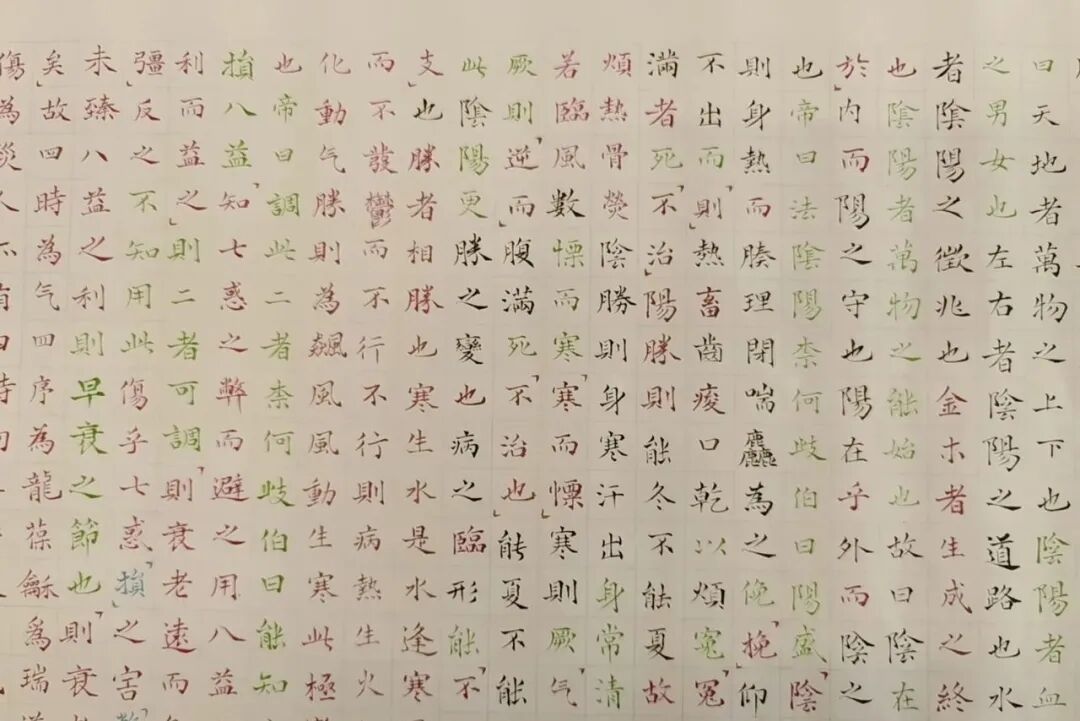 曰天地者萬物之上下也陰陽者血
之男女也左右者陰陽之道路也水
者陰陽之徵兆也金木者生成之終
也陰陽者萬物之能始也故曰陰在
於内而陽之守也陽在乎外而陰之
也帝曰法陰陽柰何歧伯曰陽盛陰
則身熱而腠理閉喘麤為之俛挽仰
不出而則熱畜齒痠口乾以煩寃冤
滿者死不治陽勝則能冬不能夏故
煩熱骨熒陰勝則身寒汗出身常清
若臨風數慄而寒寒而慄寒則厥气
厥則逆而腹滿死不治也能夏不能
此陰陽更勝之變也病之臨形能不
支也勝者相勝也寒生水是水逢寒
而不發鬱而不行不行則病熱生火
化動气勝則為飆風風動生寒此極
也帝曰調此二者柰何歧伯曰能知
損八益知七惑之弊而避之用八益
利而益之則二者可調則衰老遠而
彊反之不知用此傷乎七惑損之害
未臻八益之利則早衰之節也則衰
矣故四時為气四序為龍葆龢為瑞
傷為災